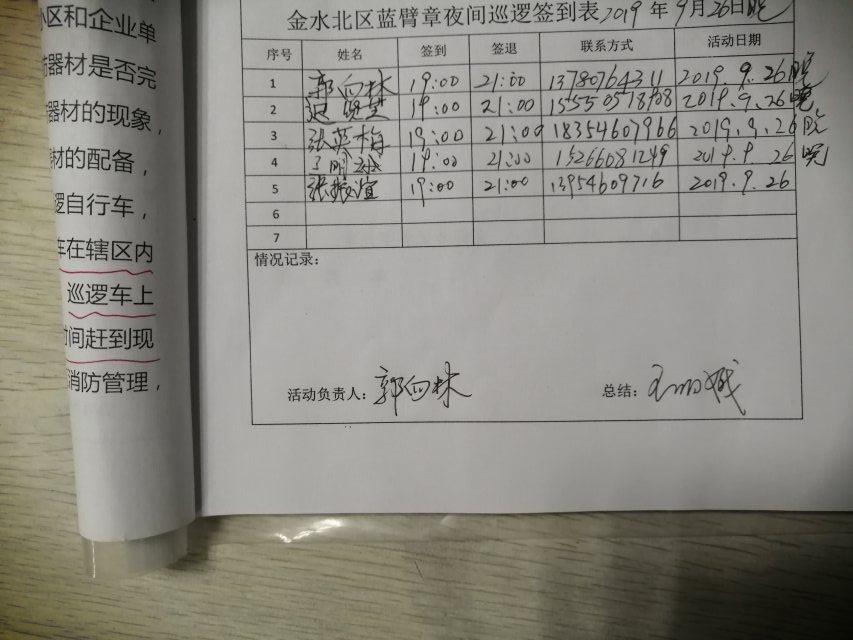 小区和企业单
器材是否完
器材的现象，
材的配备，
逻自行车，
车在辖区内
巡逻车上
时间赶到现
消防管理，
金水北区蓝臂章夜间巡逻签到表2019年9月26日晚
序号 姓名 签到 签退 联系方式 活动日期
1 郭向林 19:00 21:00 13780764311 2019.9.26晚
2 19:00 21:00 15550518908 2019.9.26晚
3 张英梅 19:00 21:00 18354607966 2019.9.26晚
4 19:00 21:00 15266081249 2019.9.26晚
5 张振谊 19:00 21:00 13954609716 2019.9.26
6
7
情况记录：
活动负责人：郭向林 总结：